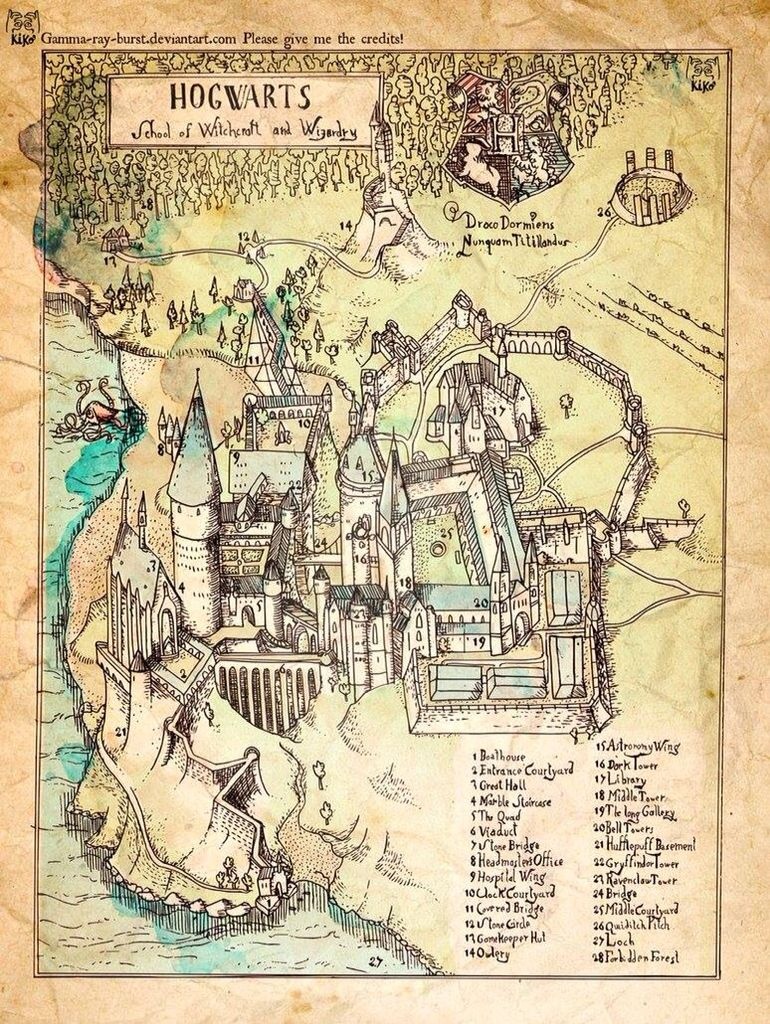 KiKo Gamma-ray-burst.deviantart.com Please give me the credits!
KiKo
HOGWARTS
School of Witchcraft and Wizardry
H
Draco Dormiens
Nunquam Titillandus
28
26
14
12
13
11
10
17
8
9
15
22
25
16
3
4
18
20
5
19
2
21
27
1 Boathouse
2 Entrance Courtyard
3 Great Hall
4 Marble Staircase
5 The Quad
6 Viaduct
7 Stone Bridge
8 Headmasters Office
9 Hospital Wing
10 Clock Courtyard
11 Covered Bridge
12 Stone Circle
13 Gamekeeper Hut
14 Owlery
15 Astronomy Wing
16 Dark Tower
17 Library
18 Middle Tower
19 The long Gallery
20 Bell Towers
21 Hufflepuff Basement
22 Gryffindor Tower
23 Ravenclaw Tower
24 Bridge
25 Middle Courtyard
26 Quiditch Pitch
27 Loch
28 Forbidden Forest